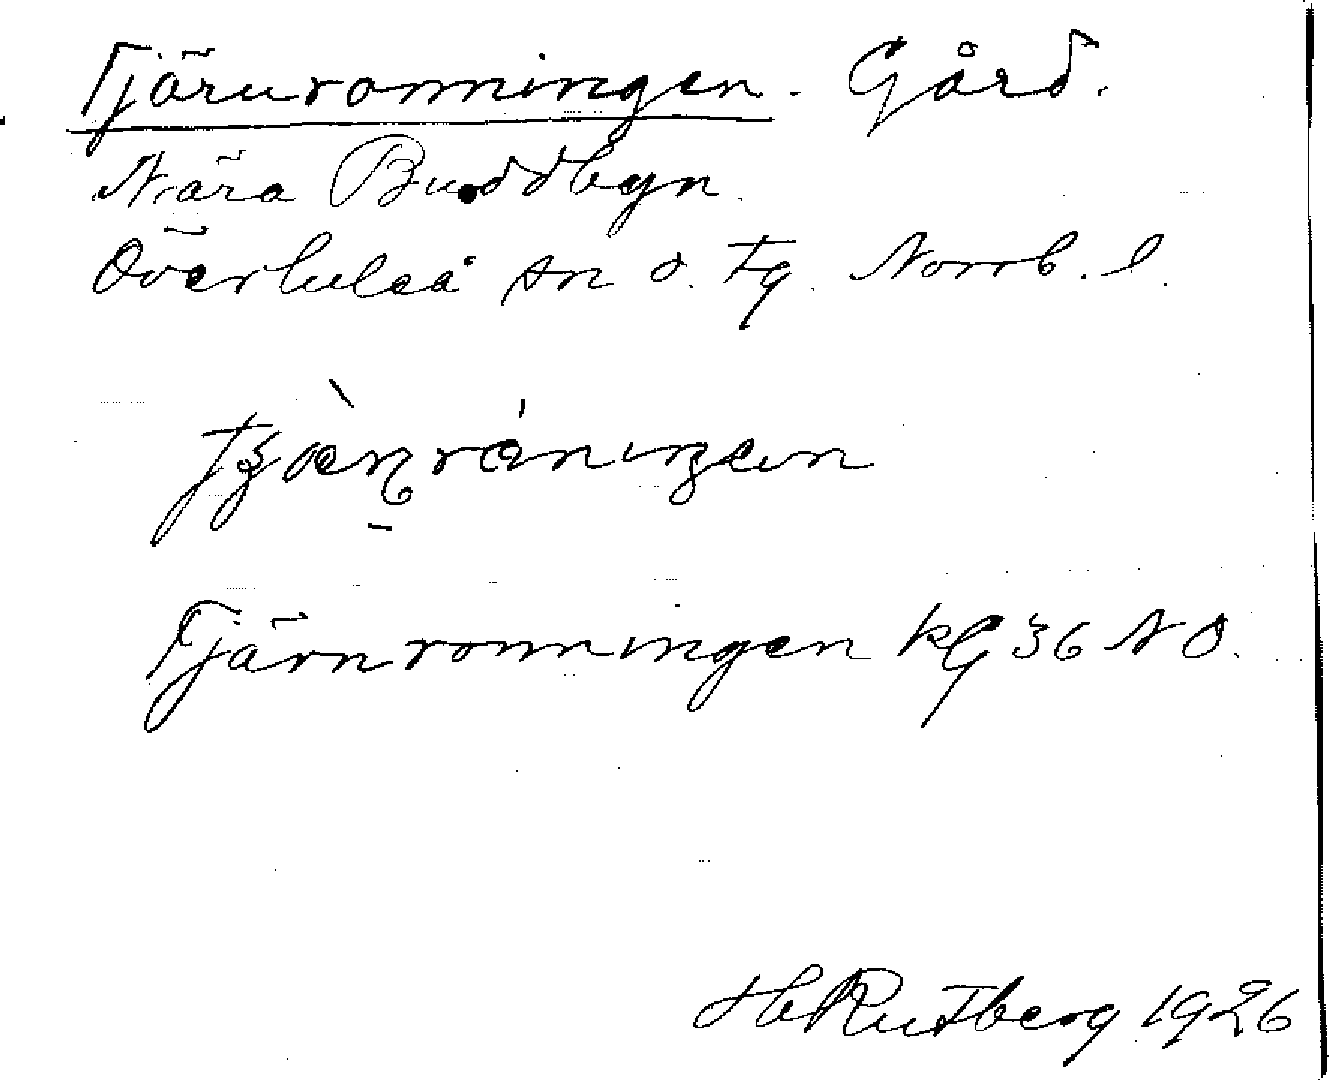 Tjärnronningen. Gård.
Nära Buddbyn.
Överluleå sn o. tg. Norrb. l.
Tjärnronningen KG 36 NO.
H Rutberg 1926